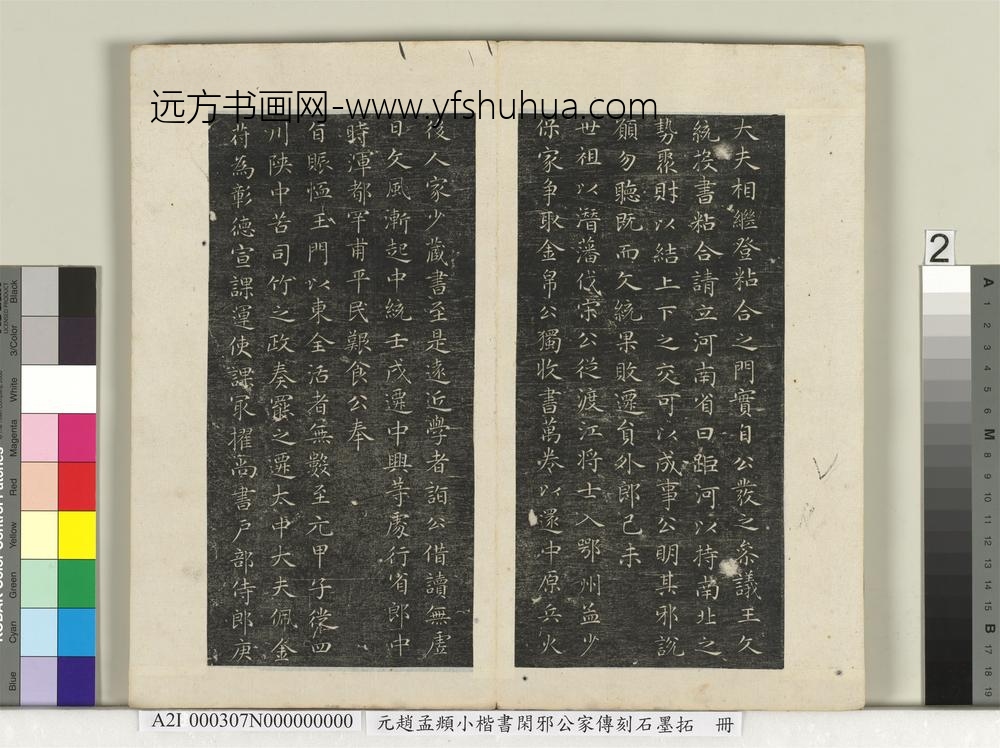 远方书画网-www.yfshuhua.com
大夫相繼登粘合之門實自公發之叅議王久
統投書粘合請立河南省曰距河以持南北之
勢聚財以結上下之交可以成事公明其邪說
願勿聽既而久統果敗遷貟外郎己未
世祖以潛藩伐宋公從渡江將士入鄂州益少
保家爭取金帛公獨收書萬卷以還中原兵火
後人家少藏書至是遂近學者詣公借讀無虛
日文風漸起中統壬戌遷中興等處行省郎中
時渾都罕甫平民艱食公奉
旨賑恤玉門以東全活者無數至元甲子僉四
川陝中苦司竹之政奏罷之遷太中大夫佩金
苻為彰德宣課運使課冣擢尚書戶部侍郎庚
2
A2I 000307N000000000
元趙孟頫小楷書閑邪公家傳刻石墨拓 冊
Black
3/Color
White
Magenta
Red
Yellow
Green
Cyan
Blue
LICENSED PRODUCT
A 1 2 3 4 5 6 M 8 9 10 11 12 13 14 15 B 17 18 19